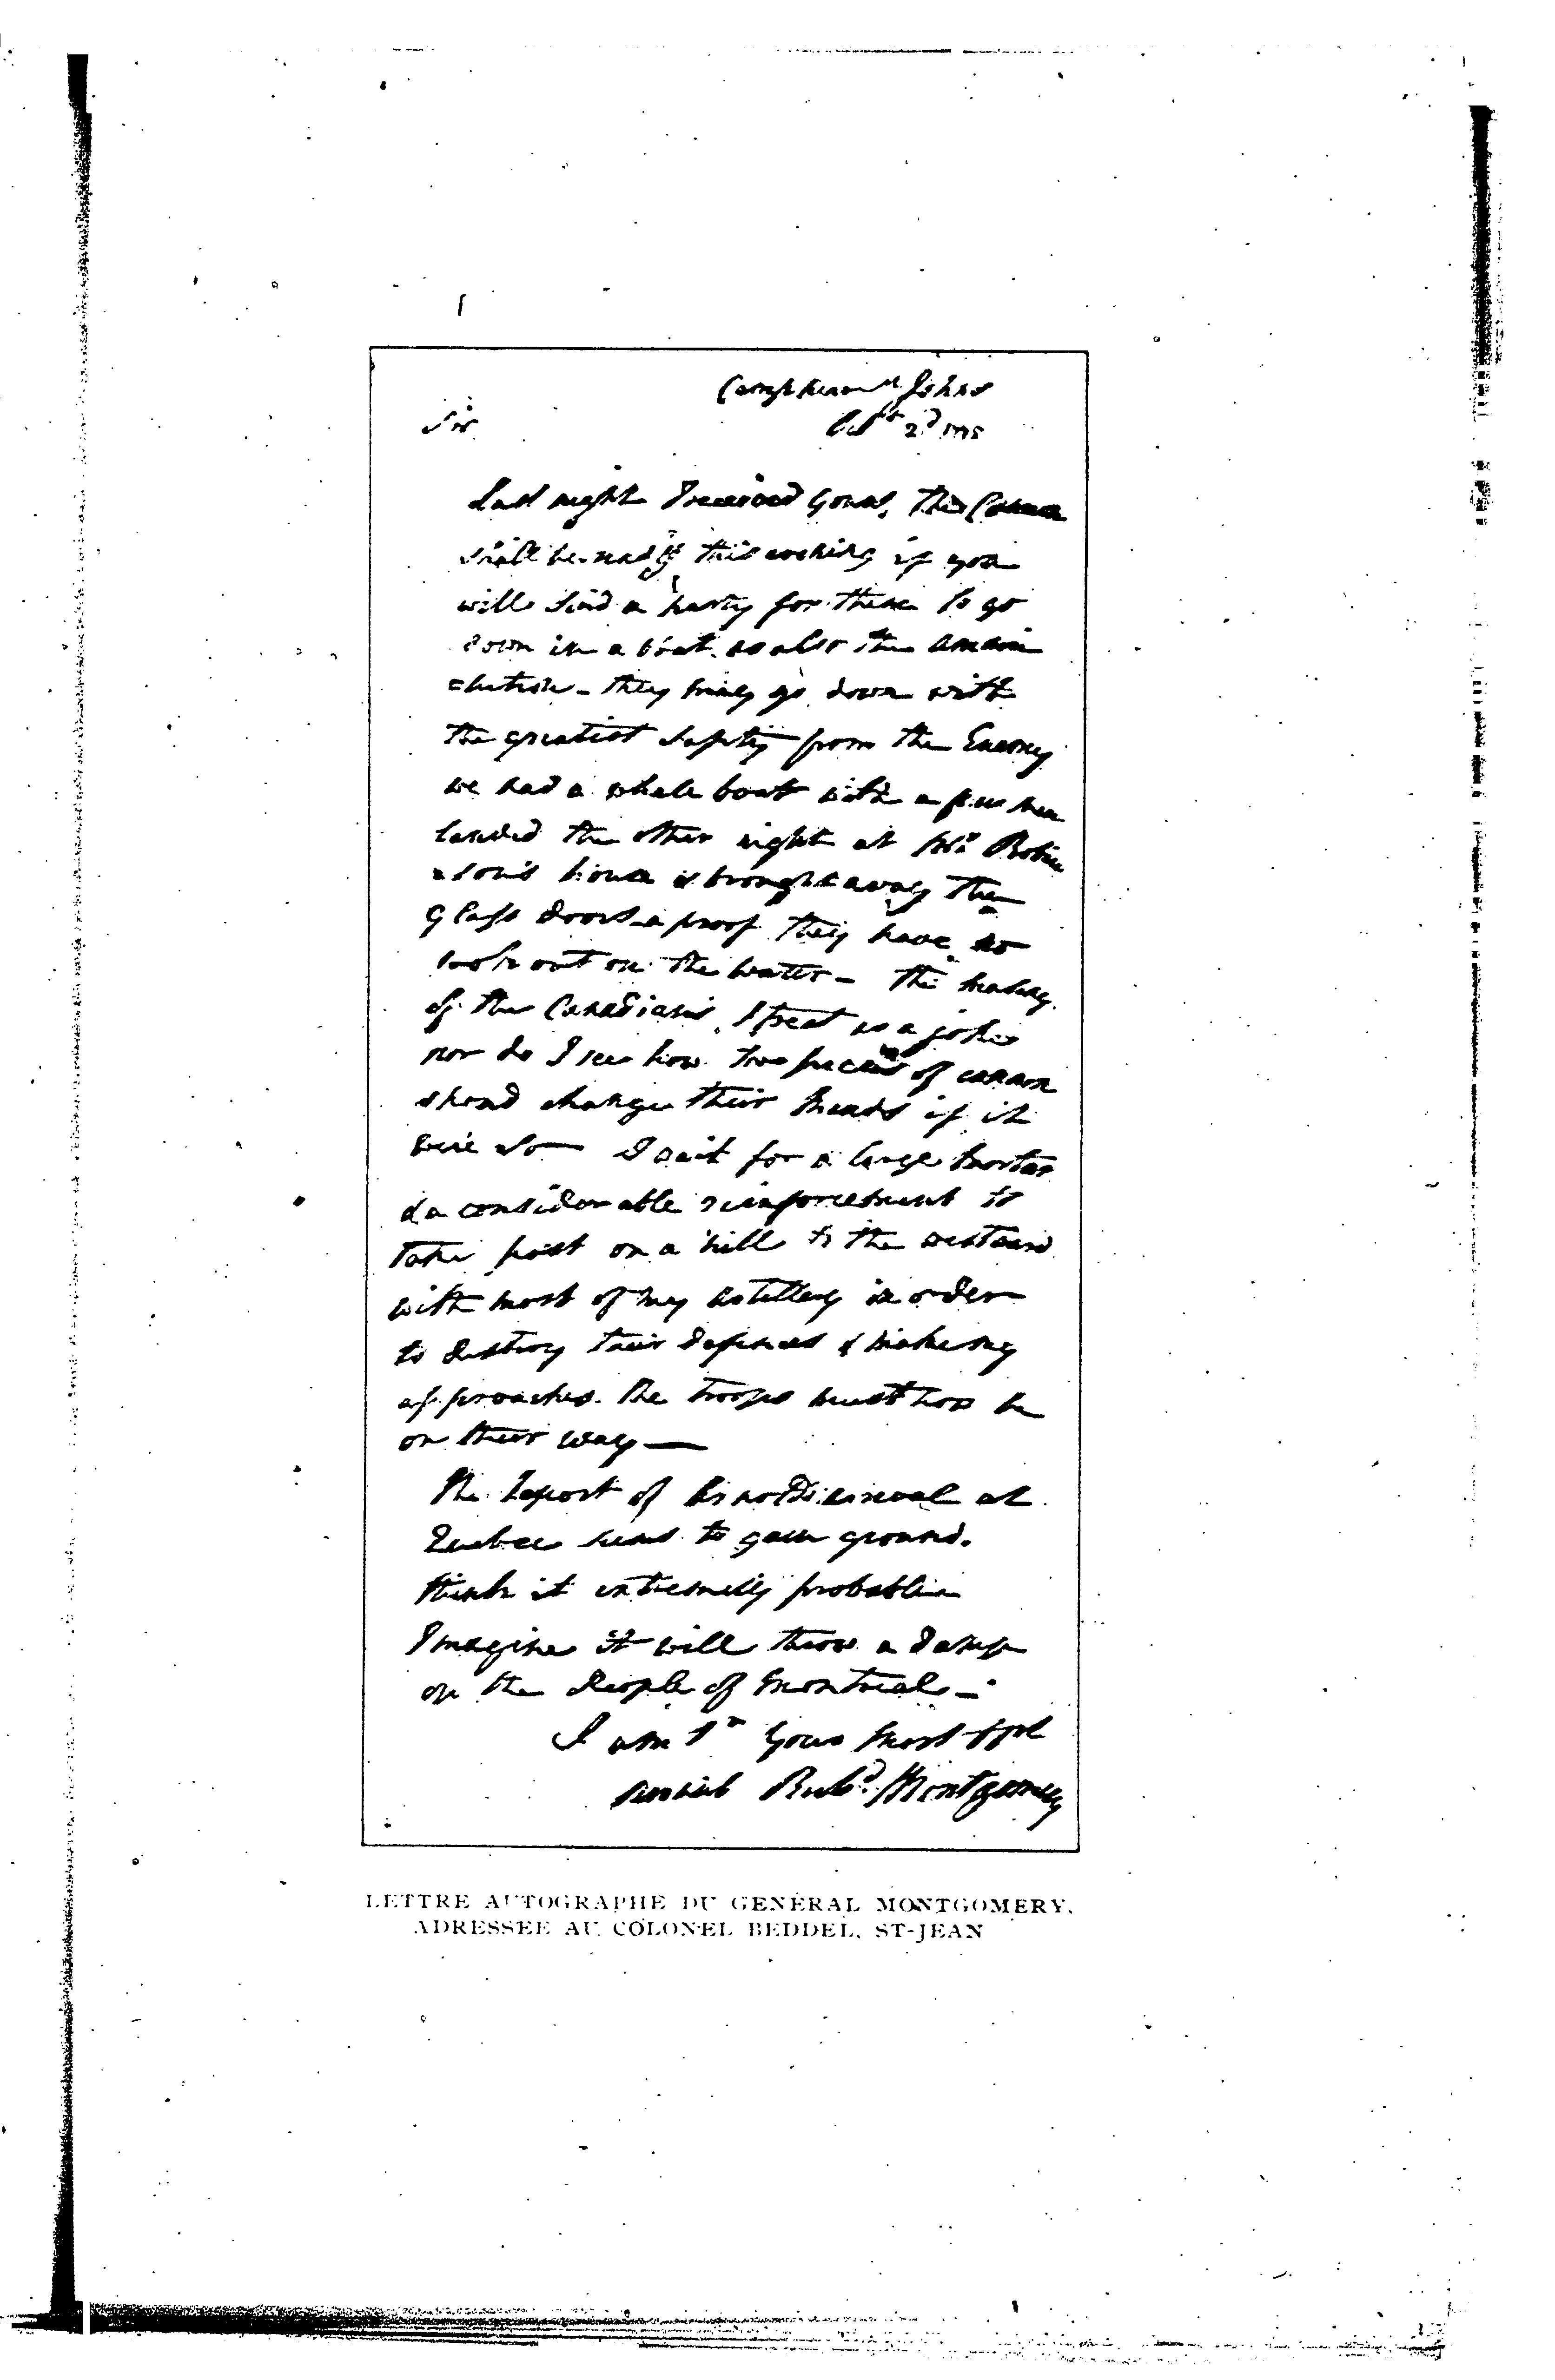 Camp near St Johns
Octbr 2d 1775
Sir
Last night I received yours, The Cannon
shall be ready this evening if you
will send a party for them to go
down in a boat. as also the ammu
nition - they may go down with
the greatest safety from the Enemy
we had a whale boat with a few men
landed the other night at Mr Robin
son's house & brought away the
glass doors a proof they have no
look out on the water - The
of the Canadians I treat as a joke
nor do I see how two pieces of cannon
shoud change their minds if it
were so I wait for a large mortar
& a considerable reinforcement to
take post on a hill to the westward
with most of my artillery in order
to destroy their defences & making
approaches. The troops must now be
on their way —
The report of at
Quebec seems to gain ground.
think it extremely probable
Imagine it will throw a damp
on the People of Montreal -
I am Sr Your most
servant Richd. Montgomery
LETTRE AUTOGRAPHE DU GENÉRAL MONTGOMERY,
ADRESSEE AU COLONEL BEDDEL, ST-JEAN